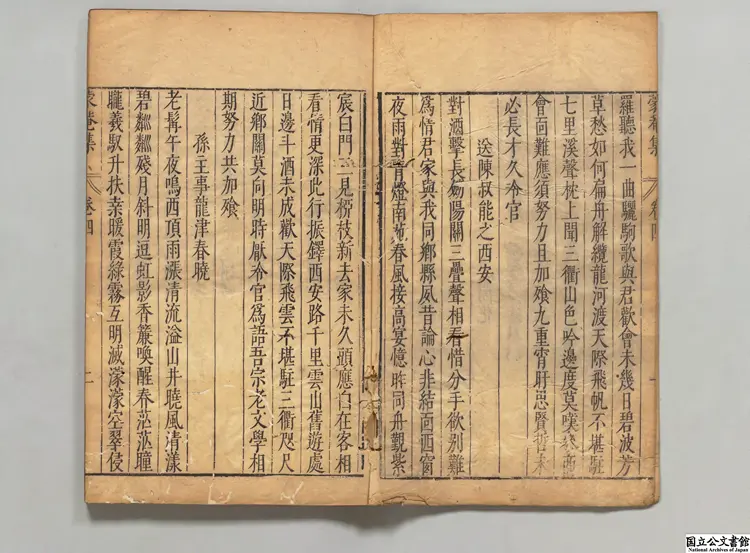 蒙菴集 卷四 一
羅聽我一曲驪駒歌與君歡會未幾日碧波芳
草愁如何扁舟解纜龍河渡天際飛帆不堪駐
七里溪聲枕上聞三衢山色吟邊度莫嘆參商
會面難應須努力且加飧九重宵旰思賢哲未
必長才久冷官
送陳叔能之西安
對酒擊長劒陽關三疊聲相看惜分手欲別難
爲情君家與我同鄉縣夙昔論心非結面西窗
夜雨對青燈南苑春風接高宴憶昨同舟觀紫
宸白門二見楊枝新去家未久頭應白在客相
看情更深此行振鐸西安路千里雲山舊遊處
日邊斗酒未成歡天際飛雲不堪駐三衢咫尺
近鄉關莫向明時厭冷官爲語吾宗老文學相
期努力共加飧
孫主事龍津春曉
老髯午夜鳴西頂雨漲清流溢山井曉風清漾
碧粼粼殘月斜明逗虹影香簾喚醒春茫茫瞳
朧羲馭升扶桒暖霞綠霧互明滅濛濛空翠侵
蒙菴集 卷四 二
国立公文書館
National Archives of Japan